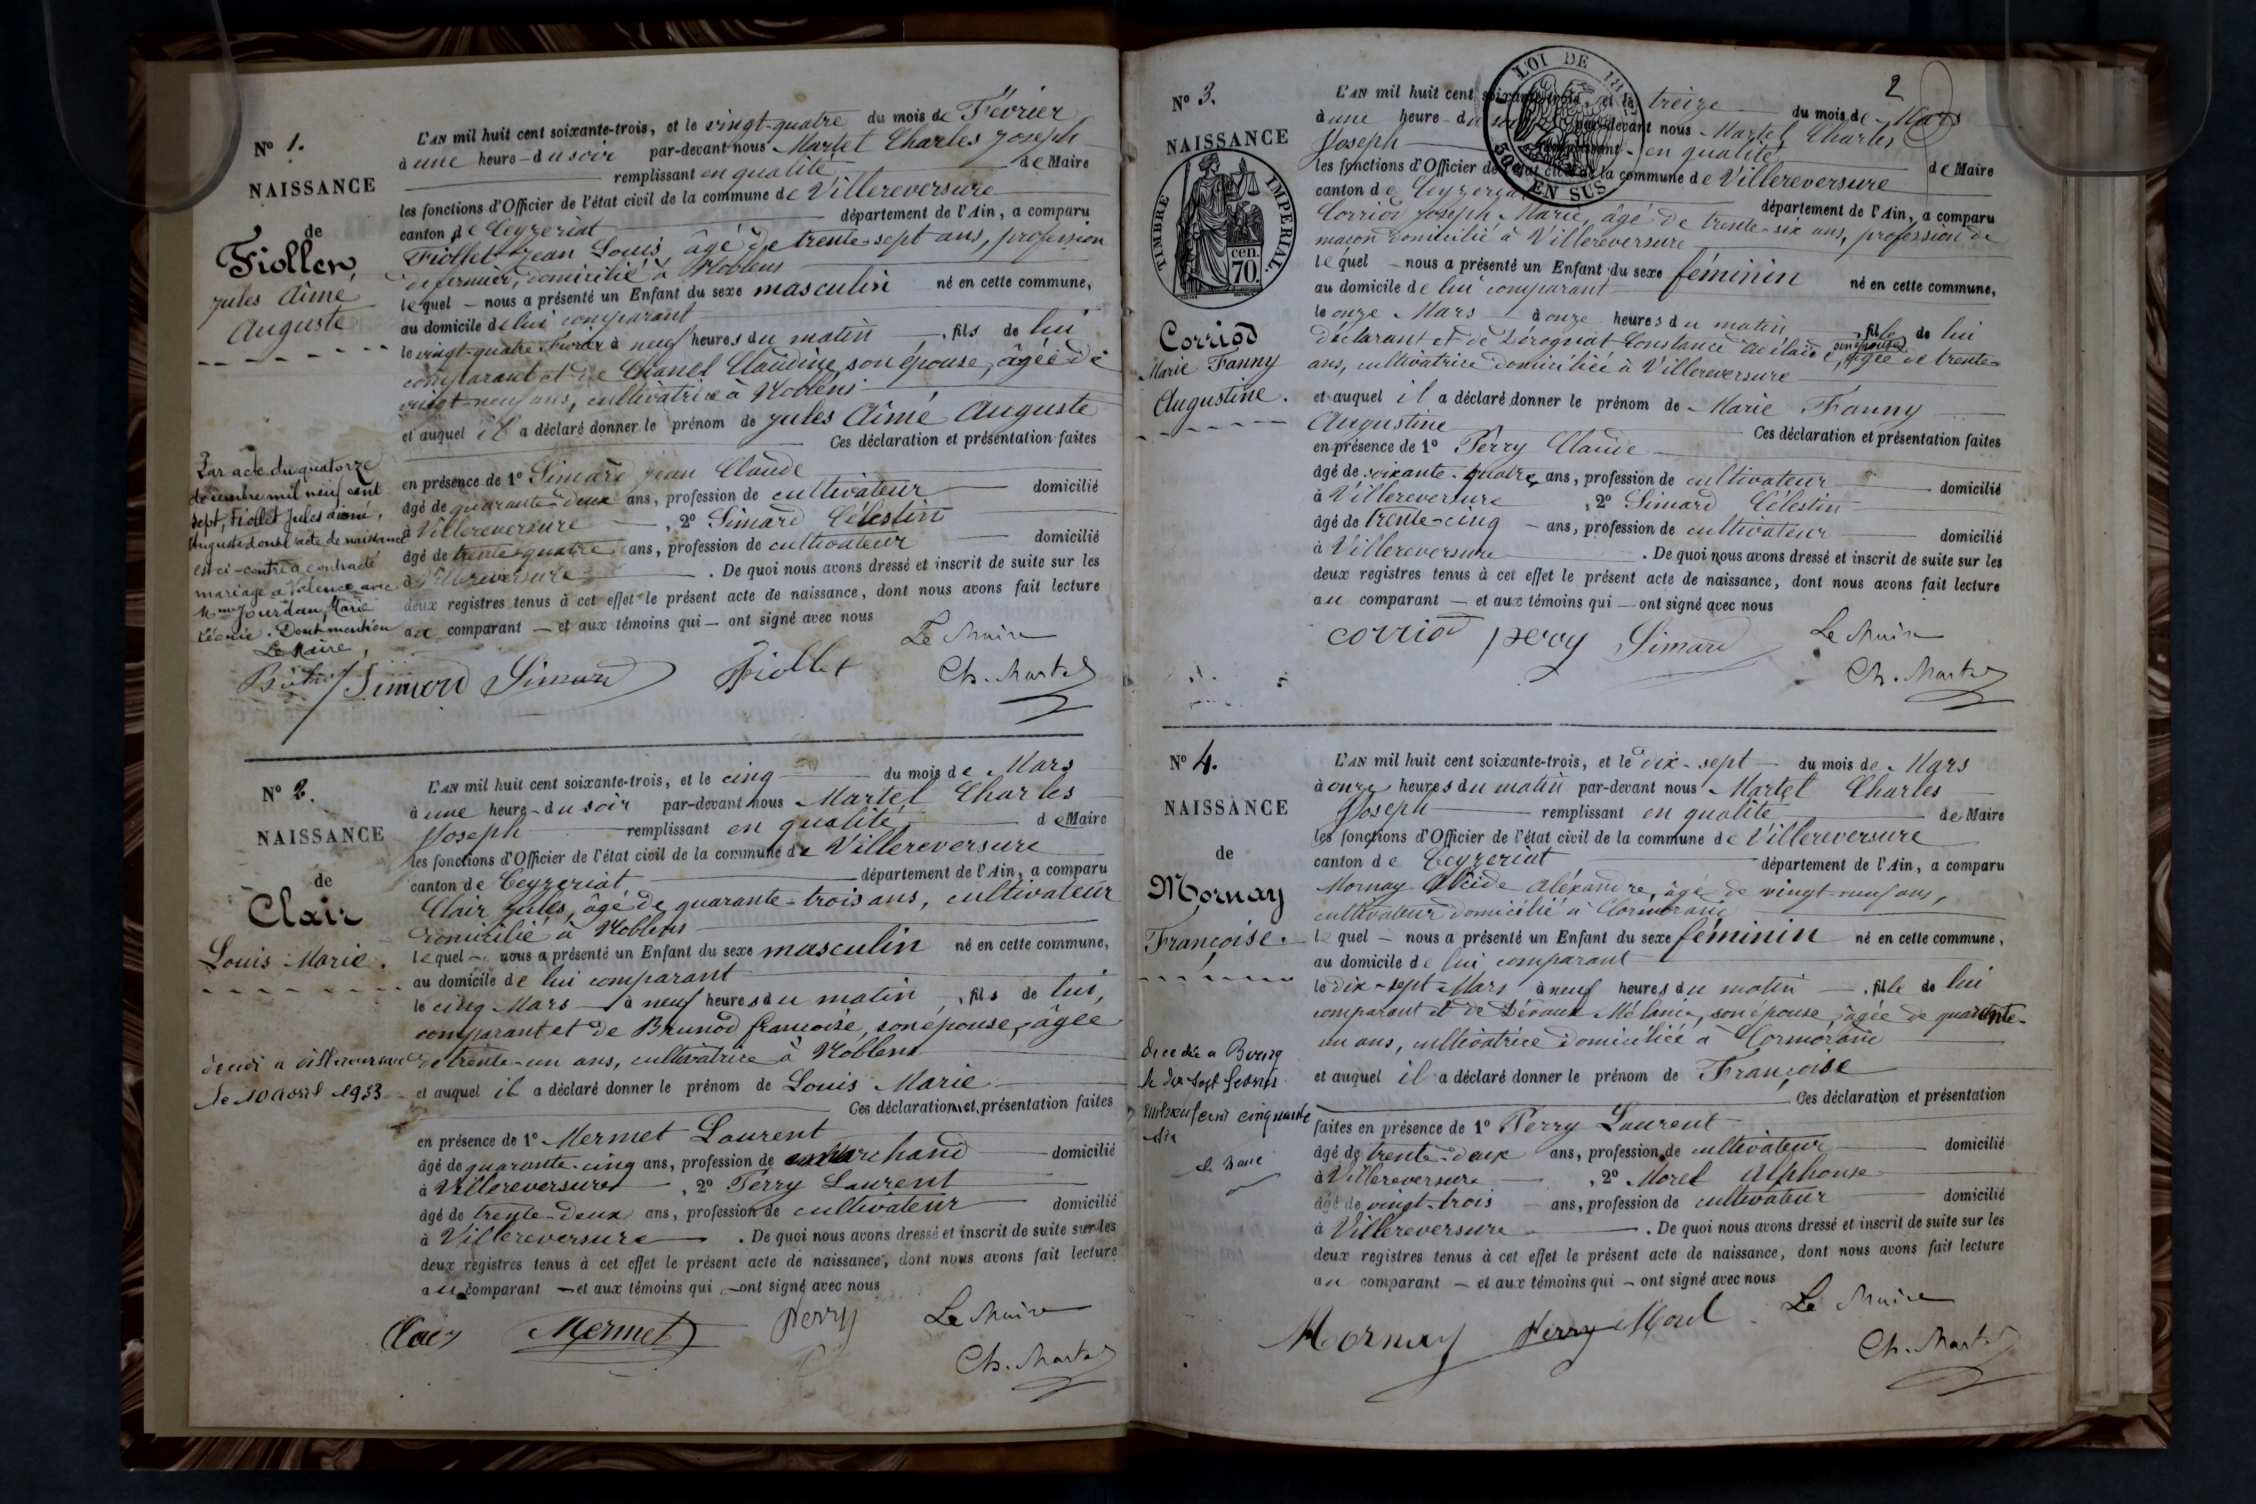 N° 1.
NAISSANCE
de
Fiollet,
Jules Aimé
Auguste
L'AN mil huit cent soixante-trois, et le vingt-quatre du mois de Février
à une heure du soir par-devant nous Martel Charles Joseph
remplissant en qualité de Maire
les fonctions d'Officier de l'état civil de la commune de Villereversure
canton de Ceyzeriat département de l'Ain, a comparu
Fiollet Jean Louis, âgé de trente-sept ans, profession
de fermier, domicilié à Noblens
lequel nous a présenté un Enfant du sexe masculin né en cette commune,
au domicile de lui comparant
le vingt-quatre Février à neuf heures du matin, fils de lui
comparant et de Chanel Claudine, son épouse, âgée de
vingt-neuf ans, cultivatrice à Noblens
et auquel il a déclaré donner le prénom de Jules Aimé Auguste
Ces déclaration et présentation faites
en présence de 1° Simard Jean Claude
âgé de quarante-deux ans, profession de cultivateur domicilié
à Villereversure, 2° Simard Célestin
âgé de trente-quatre ans, profession de cultivateur domicilié
à Villereversure. De quoi nous avons dressé et inscrit de suite sur les
deux registres tenus à cet effet le présent acte de naissance, dont nous avons fait lecture
au comparant et aux témoins qui ont signé avec nous
Le Maire
Simard Simard Fiollet Ch. Martel
Par acte du quatorze
décembre mil neuf cent
sept, Fiollet Jules Aimé,
Auguste dont l'acte de naissance
est ci-contre a contracté
mariage à Valence avec
Mme Jourdan, Marie
Léonie. Dont mention
Le Maire,
N° 2.
NAISSANCE
de
Clair
Louis Marie.
L'AN mil huit cent soixante-trois, et le cinq du mois de Mars
à une heure du soir par-devant nous Martel Charles
Joseph remplissant en qualité de Maire
les fonctions d'Officier de l'état civil de la commune de Villereversure
canton de Ceyzeriat département de l'Ain, a comparu
Clair Jules, âgé de quarante-trois ans, cultivateur
domicilié à Noblens
lequel nous a présenté un Enfant du sexe masculin né en cette commune,
au domicile de lui comparant
le cinq Mars à neuf heures du matin, fils de lui,
comparant et de Brunod françoise, son épouse, âgée
de trente-un ans, cultivatrice à Noblens
et auquel il a déclaré donner le prénom de Louis Marie
Ces déclaration et présentation faites
en présence de 1° Mermet Laurent
âgé de quarante-cinq ans, profession de marchand domicilié
à Villereversure, 2° Perry Laurent
âgé de trente-deux ans, profession de cultivateur domicilié
à Villereversure. De quoi nous avons dressé et inscrit de suite sur les
deux registres tenus à cet effet le présent acte de naissance, dont nous avons fait lecture
au comparant et aux témoins qui ont signé avec nous
Clair Mermet Perry Le Maire
Ch. Martel
décédé à Villereversure
le 10 avril 1933
2
LOI DE
EN SUS
N° 3.
NAISSANCE
TIMBRE IMPÉRIAL.
cen.
70.
Corriod
Marie Fanny
Augustine.
L'AN mil huit cent soixante-trois, et le treize du mois de Mars
à une heure du soir par-devant nous Martel Charles
Joseph remplissant en qualité de Maire
les fonctions d'Officier de l'état civil de la commune de Villereversure
canton de Ceyzeriat département de l'Ain, a comparu
Corriod Joseph Marie, âgé de trente-six ans, profession de
maçon domicilié à Villereversure
lequel nous a présenté un Enfant du sexe féminin né en cette commune,
au domicile de lui comparant
le onze Mars à onze heures du matin, fille de lui
déclarant et de Dérognat Constance Adélaïde, son épouse, âgée de trente
ans, cultivatrice domiciliée à Villereversure
et auquel il a déclaré donner le prénom de Marie Fanny
Augustine Ces déclaration et présentation faites
en présence de 1° Perry Claude
âgé de soixante-quatre ans, profession de cultivateur domicilié
à Villereversure, 2° Simard Célestin
âgé de trente-cinq ans, profession de cultivateur domicilié
à Villereversure. De quoi nous avons dressé et inscrit de suite sur les
deux registres tenus à cet effet le présent acte de naissance, dont nous avons fait lecture
au comparant et aux témoins qui ont signé avec nous
corriod perry Simard Le Maire
Ch. Martel
N° 4.
NAISSANCE
de
Mornay
Françoise.
L'AN mil huit cent soixante-trois, et le dix-sept du mois de Mars
à onze heures du matin par-devant nous Martel Charles
Joseph remplissant en qualité de Maire
les fonctions d'Officier de l'état civil de la commune de Villereversure
canton de Ceyzeriat département de l'Ain, a comparu
Mornay Alcide Aléxandre, âgé de vingt-neuf ans,
cultivateur domicilié à Cormoranie
lequel nous a présenté un Enfant du sexe féminin né en cette commune,
au domicile de lui comparant
le dix-sept Mars à neuf heures du matin, fille de lui
comparant et de Dévaux Mélanie, son épouse, âgée de quarante-
un ans, cultivatrice domiciliée à Cormoranie
et auquel il a déclaré donner le prénom de Françoise
Ces déclaration et présentation
faites en présence de 1° Perry Laurent
âgé de trente-deux ans, profession de cultivateur domicilié
à Villereversure, 2° Morel Alphonse
âgé de vingt-trois ans, profession de cultivateur domicilié
à Villereversure. De quoi nous avons dressé et inscrit de suite sur les
deux registres tenus à cet effet le présent acte de naissance, dont nous avons fait lecture
au comparant et aux témoins qui ont signé avec nous
Mornay Perry Morel Le Maire
Ch. Martel
décédée à Bourg
le dix sept février
mil neuf cent cinquante